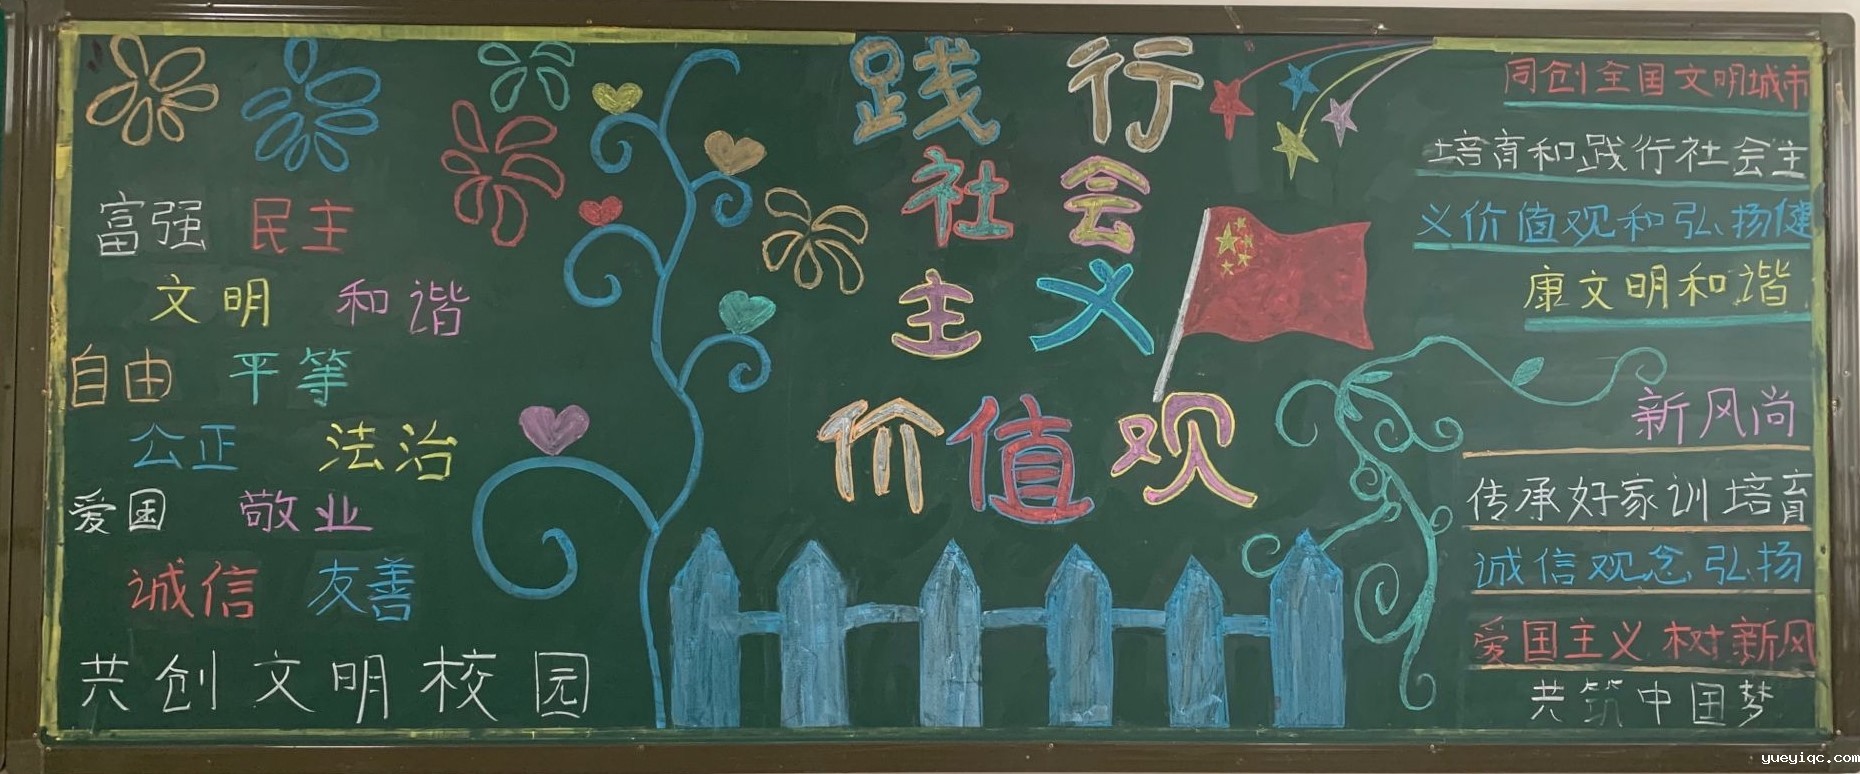 富强 民主
文明 和谐
自由 平等
公正 法治
爱国 敬业
诚信 友善
共创文明校园
践行
社会
主义
价值观
同创全国文明城市
培育和践行社会主
义价值观和弘扬健
康文明和谐
新风尚
传承好家训培育
诚信观念弘扬
爱国主义树新风
共筑中国梦
yueyiqc.com